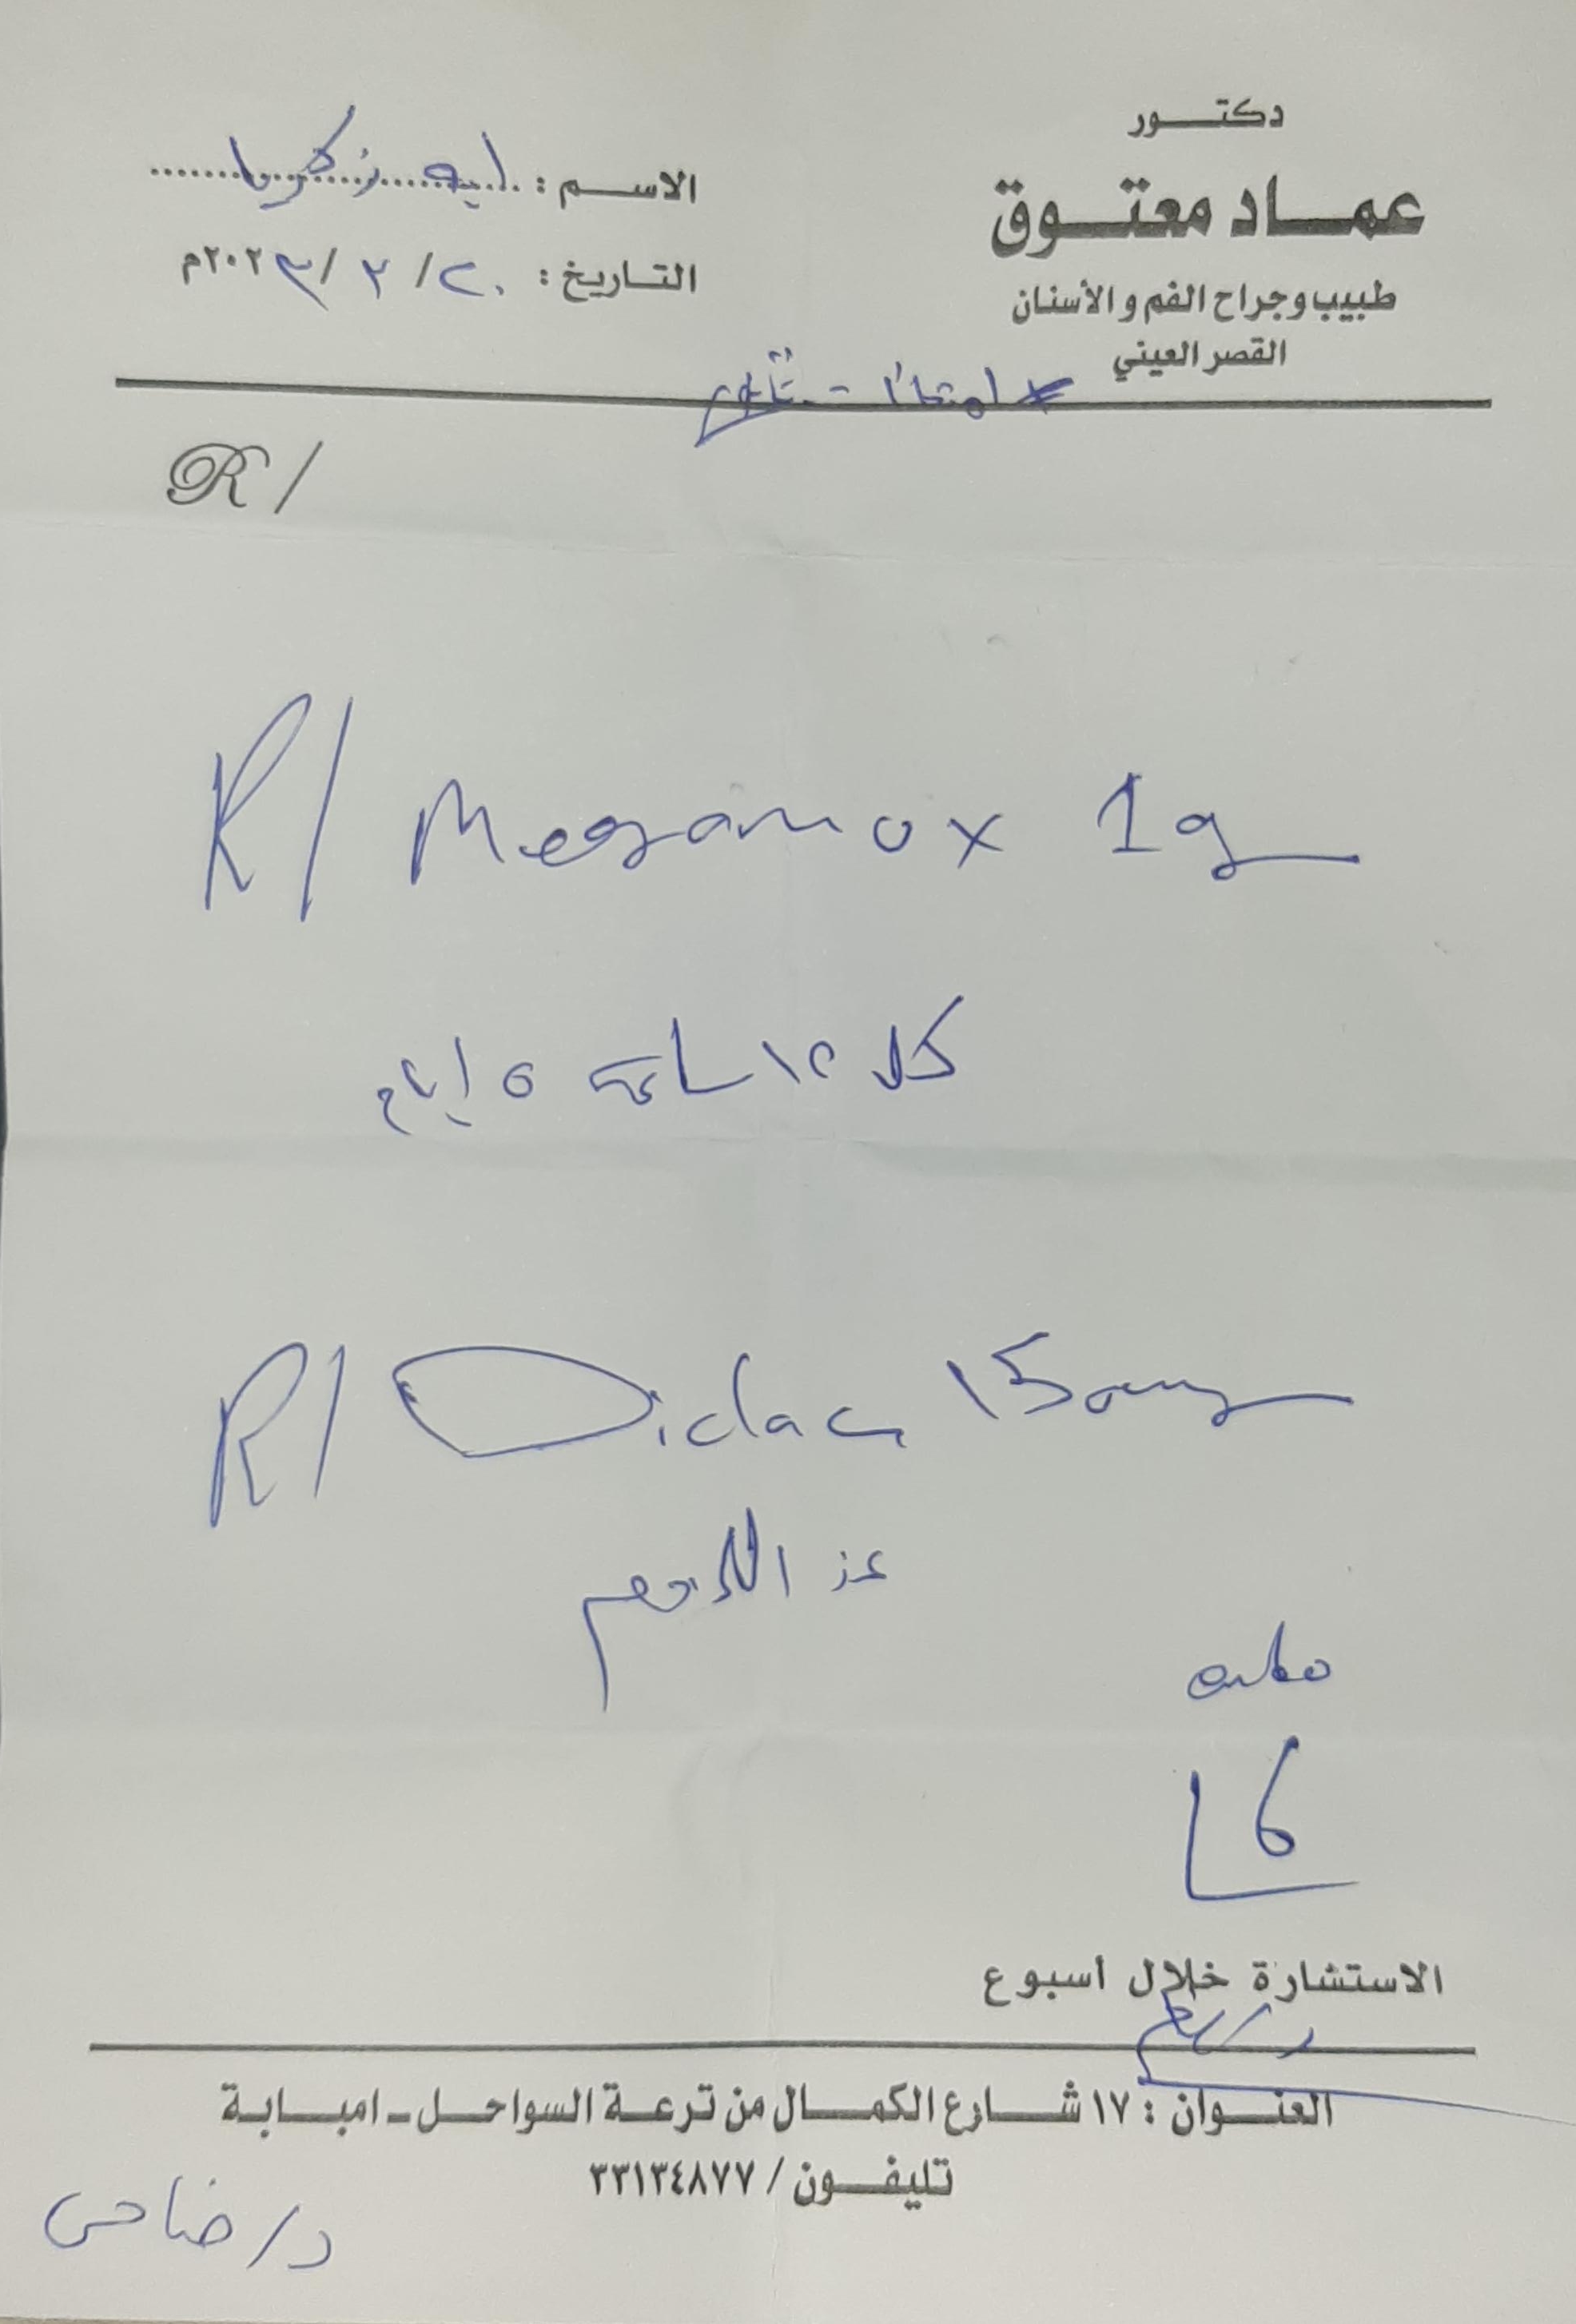 دكتور
عماد معتوق
طبيب وجراح الفم والأسنان
القصر العيني
الاسم : ايه زكريا
التاريخ : ٢٠ / ٢ / ٢٠٢٣م
R /
R/ Megamox 1g
كل ١٢ ساعة ٥ ايام
R/ Diclac 150mg
عند اللزوم
6
الاستشارة خلال اسبوع
العنوان : ١٧ شارع الكمال من ترعة السواحل - امبابة
تليفون / ٣٣١٣٤٨٧٧
د/ ضاحى